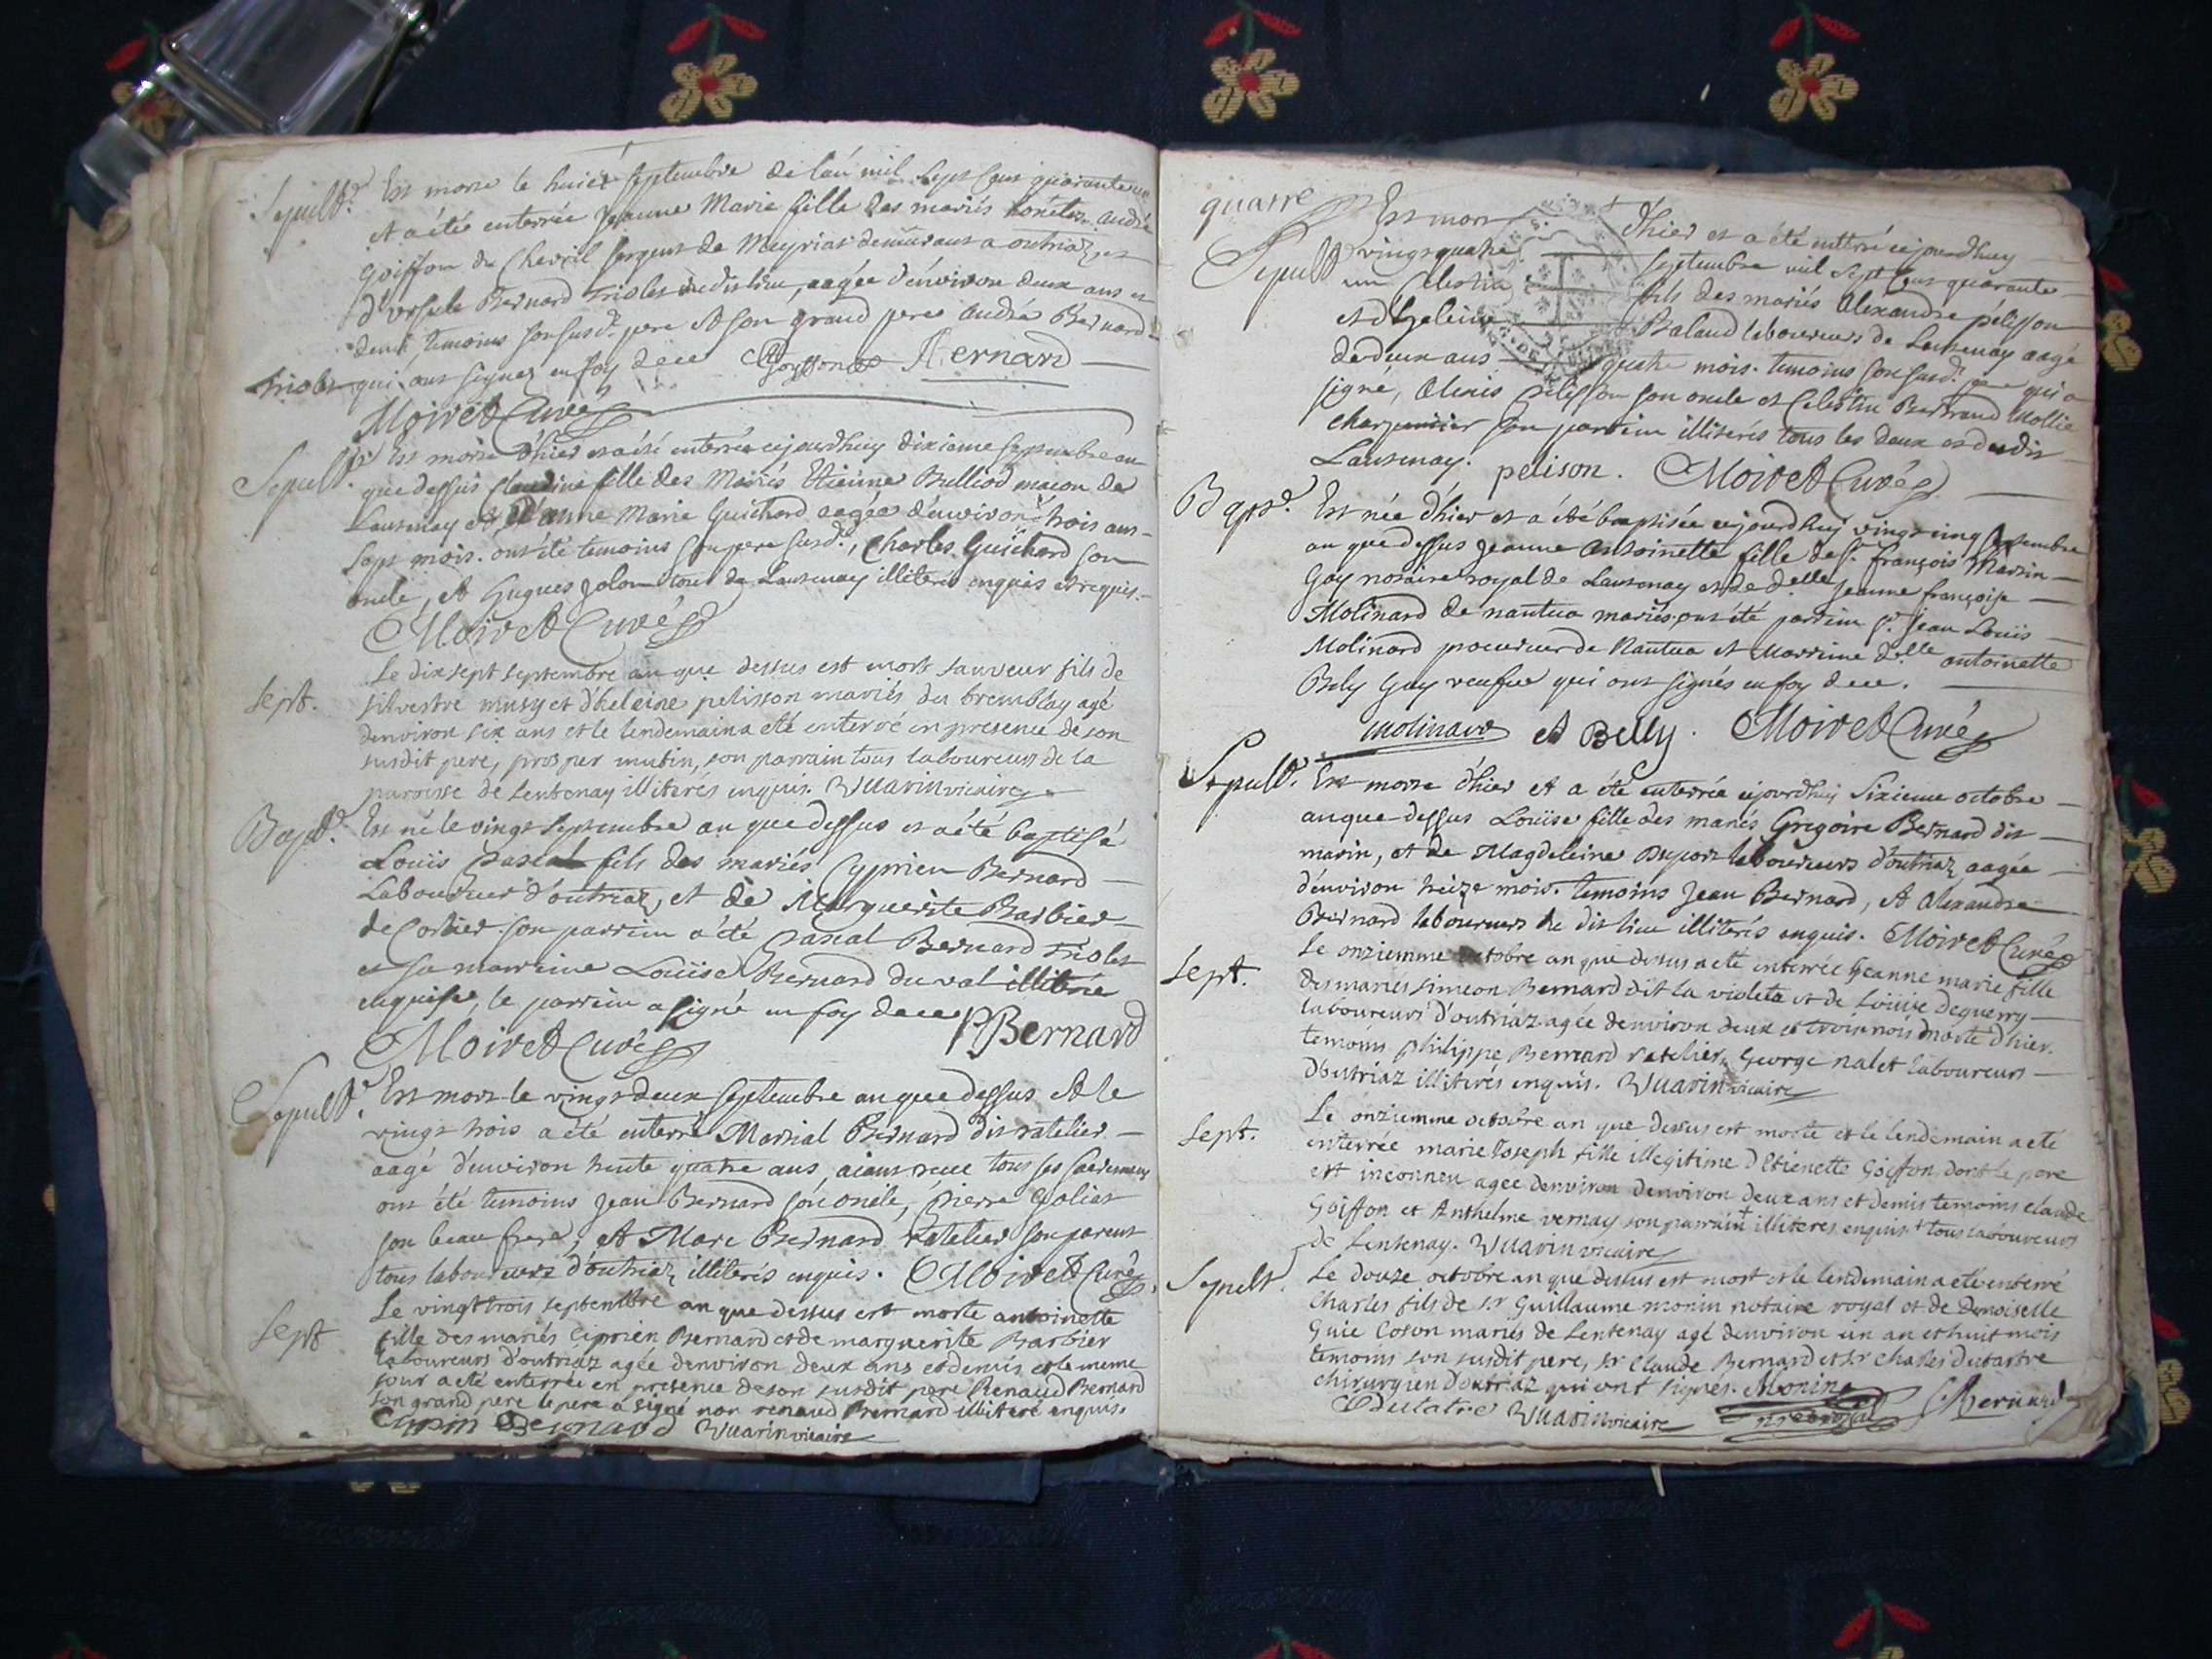 Sepult.e Est morte le huict septembre de l'an mil sept cent quarante un
et a été enterrée Jeanne Marie fille des mariés honêtes André
Goiffon du Chevril sergent de Meyriat demeurant a outriaz et
d'ursule Bernard Triolet du dit lieu, aagée d'environ deux ans et
demi temoins son susd. pere et son grand pere André Bernard
triolet qui ont signez en foy de ce Goyffon A Bernard
Moiret Curé
Sepult. Est morte d'hier et a été enterrée cejourdhuy dixieme septembre an
que dessus Claudine fille des Mariés Etienne Bulliod macon de
Lantenay et d'anne Marie Guichard aagée d'environ trois ans
sept mois. ont été temoins son pere susd., Charles Guichard son
oncle, et Hugues Jolon tous de Lantenay illiterés enquis et requis.
Moiret Curé
Le dix sept septembre an que dessus est mort sauveur fils de
sept. silvestre musy et d'heleine pelisson mariés du bremblay agé
denviron six ans et le lendemain a eté enterré en presence de son
susdit pere, prosper mutin, son parrain tous laboureurs de la
paroisse de Lentenay illiterés enquis. Vuarin vicaire
Bapt. Est né le vingt septembre an que dessus et a été baptisé
Louis Pascal fils des mariés Cyprien Bernard
Laboureur d'outriaz, et de Marguerite Barbier
de Corlier. son parrein a été Pascal Bernard triolet
et sa marreine Louïse Bernard du val illiterée
enquise, le parrein a signé en foy de ce PBernard
Moiret Curé
Sepult. Est mort le vingt deux septembre an que dessus et le
vingt trois a été enterré Martial Bernard dit ratelier
aagé d'environ trente quatre ans, aiant receu tous ses sacremens
ont été temoins Jean Bernard son oncle, Pierre Goliat
son beau frere, et Marc Bernard ratelier son parent
tous laboureurs d'outriaz illiterés enquis. Moiret Curé
Le vingt trois septembre an que dessus est morte antoinette
sept fille des mariés Ciprien Bernard et de marguerite Barbier
laboureurs d'outriaz agée denviron deux ans et demis et le meme
jour a eté enterrée en presence de son susdit pere Renaud Bernard
son grand pere le pere a signé non renaud Bernard illiteré enquis.
Bernard Vuarin vicaire
quatre
Est mort d'hier et a été enterré cejourdhuy
Sepult vingt quatre septembre mil sept cent quarante
un Celestin fils des mariés Alexandre pélisson
et d'heleine Balaud laboureurs de Lantenay aagé
de deux ans quatre mois. temoins son susd. pere qui a
signé, Alexis pelisson son oncle et Celestin Bertrand Mollie
charpentier son parrein illiterés tous les deux et du dit
Lantenay. pelison. Moiret Curé
Bapt. Est née d'hier et a été baptisée cejourdhuy vingt cinq septembre
an que dessus Jeanne Antoinette fille de sr. françois Martin
Guy notaire royal de Lantenay et de d.elle Jeanne françoise
Molinard de nantua mariés. ont été parrein sr. Jean Loüis
Molinard procureur de Nantua et Marreine d.elle antoinette
Bely Guy veufve qui ont signés en foy de ce.
molinard A Belly. Moiret Curé
Sepult. Est morte d'hier et a été enterrée cejourdhuy sixieme octobre
an que dessus Louïse fille des mariés Gregoire Bernard dit
marin, et de Magdeleine Duport laboureurs d'outriaz aagée
d'environ treize mois. temoins Jean Bernard, et Alexandre
Bernard laboureurs du dit lieu illiterés enquis. Moiret Curé
Le onziemme octobre an que dessus a eté enterrée Jeanne marie fille
sept. des mariés simeon Bernard dit la violete et de Loüise Deguerry
laboureurs d'outriaz agée denviron deux et trois mois morte dhier.
temoins philippe Bernard ratelier, George nalet laboureurs
d'outriaz illiterés enquis. Vuarin vicaire
Le onziemme octobre an que dessus est morte et le lendemain a eté
sept. enterrée marie Joseph fille illegitime d'Etienette Goiffon dont le pere
est inconneu agee denviron denviron deux ans et demis temoins claude
Goiffon et Anthelme vernay son parrain + illiteres enquis + tous laboureurs
de Lentenay. Vuarin vicaire
Sepult. Le douze octobre an que dessus est mort et le lendemain a eté enterré
Charles fils de sr Guillaume monin notaire royal et de Demoiselle
Guie Coson mariés de Lentenay agé denviron un an et huit mois
temoins son susdit pere, sr Claude Bernard et sr charles dutartre
chirurgien d'outriaz qui ont signés. Monin
Dutatre Vuarin vicaire Bernard